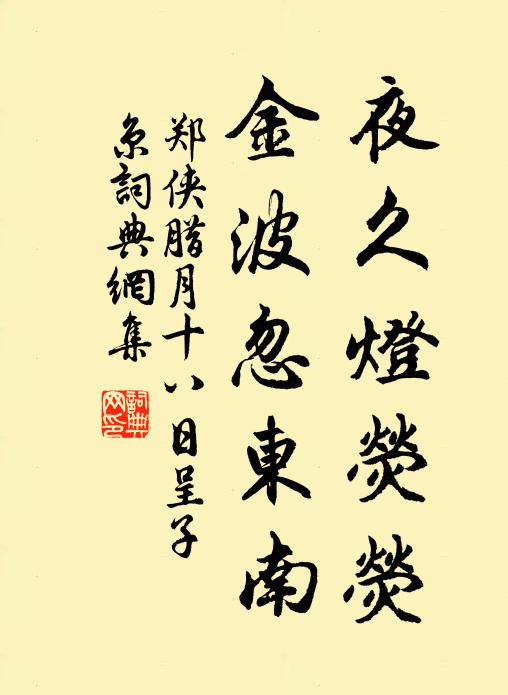 夜久燈熒熒
金波忽東南
郑侠腊月十八日呈子
京詞典網集
詞典网印